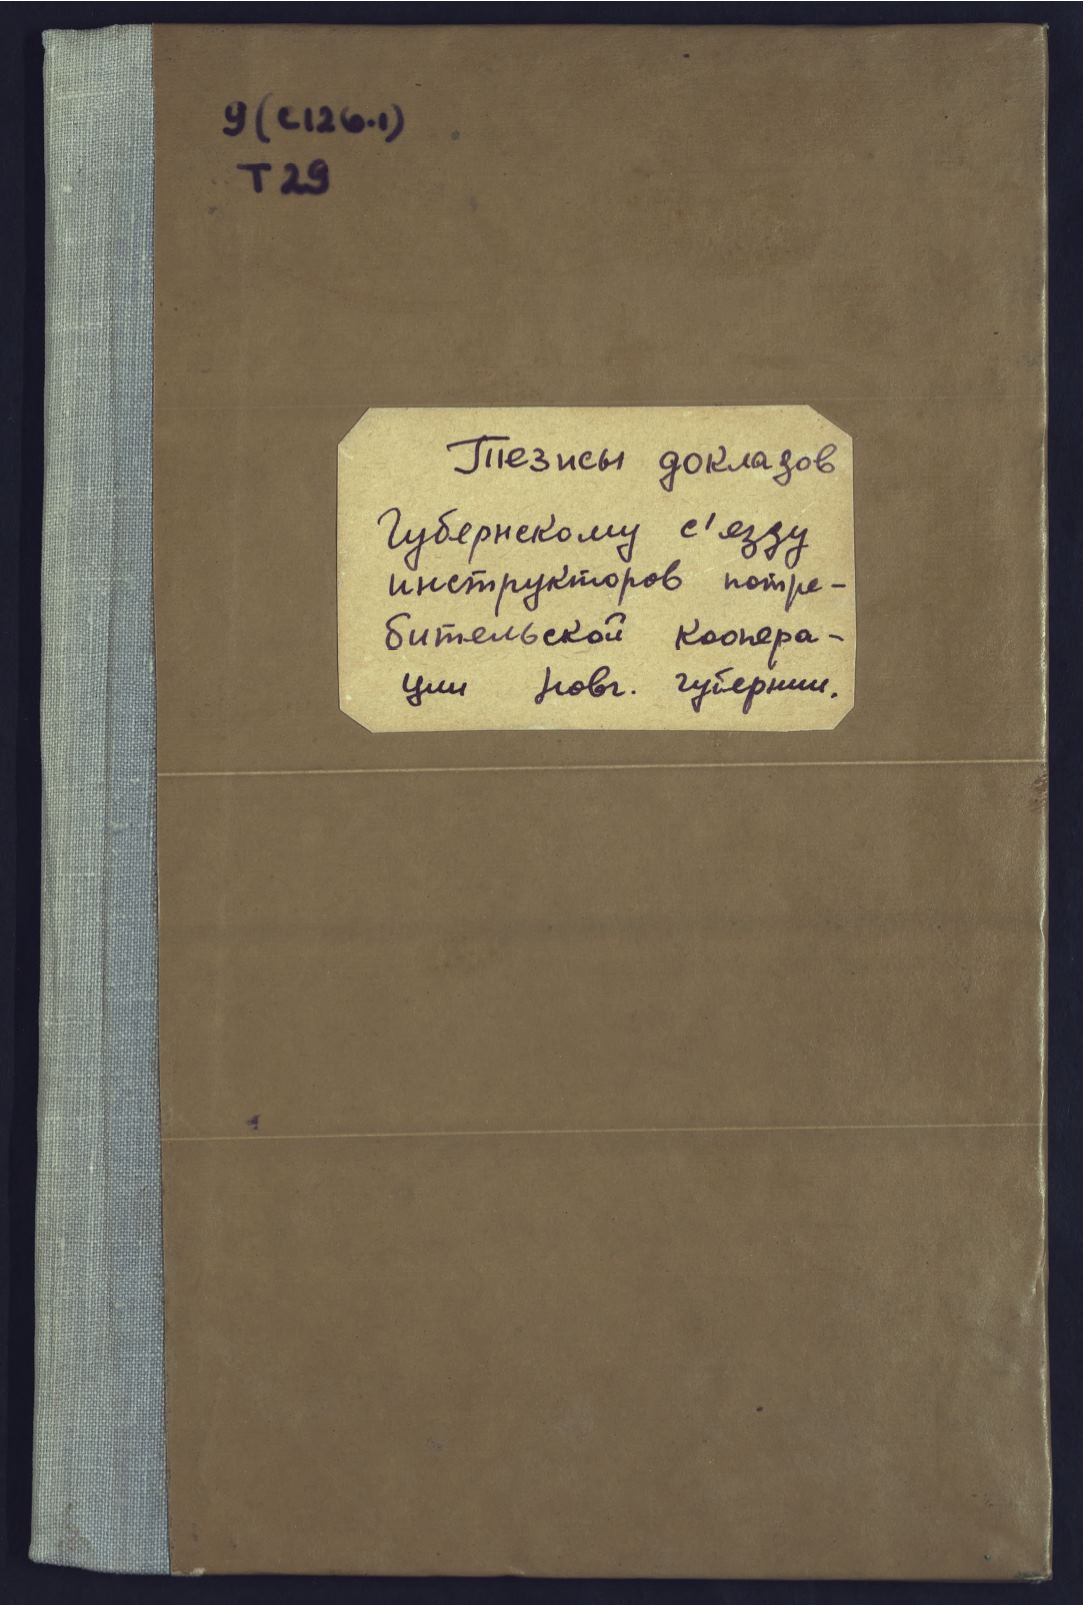 9(С126.1)
Т29
Тезисы докладов
Губернскому с'езду
инструкторов потре-
бительской коопера-
ции Новг. губернии.